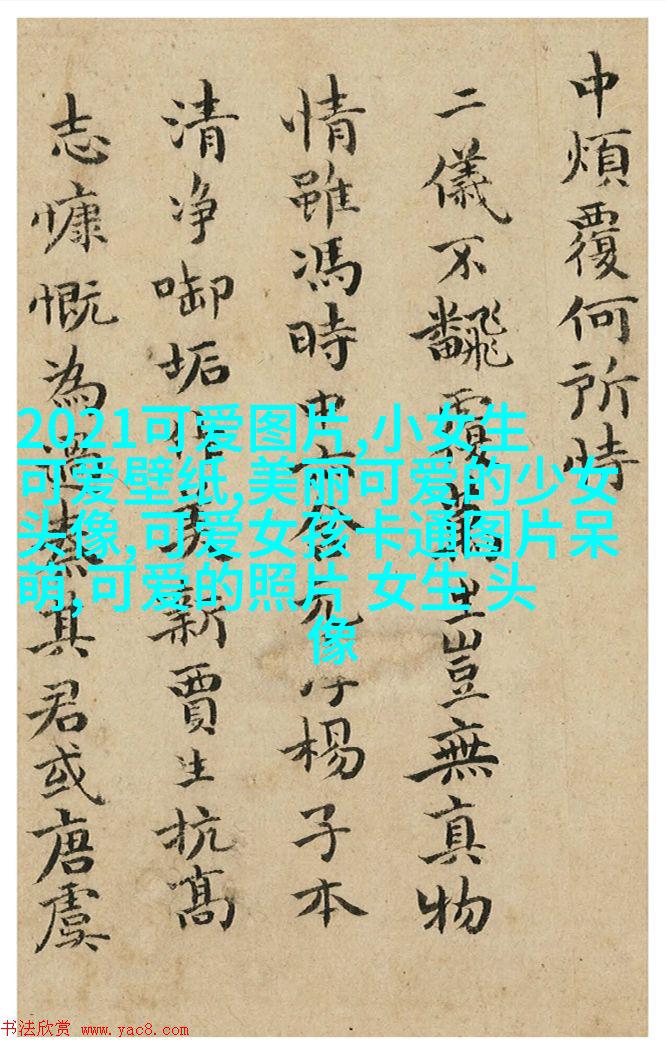 中煩覆何所恃
二儀不飜覆生豈無真物
情雖馮時合楊子本
清净啣垢新賈生抗髙
志慷慨為其君或唐虞
2021可爱图片,小女生
可爱壁纸,美丽可爱的少女
头像,可爱女孩卡通图片呆
萌,可爱的照片 女生 头
像
书法欣赏 www.yac8.com